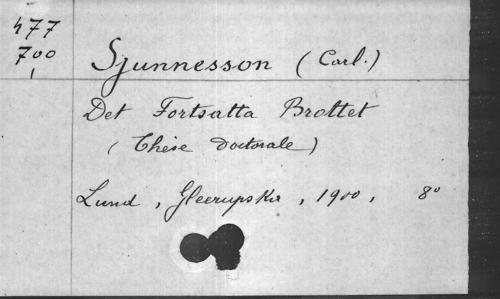 477
700
1
Sjunnesson (Carl.)
Det Fortsatta Brottet
(Thèse doctorale)
Lund, Gleerupska, 1900, 8°